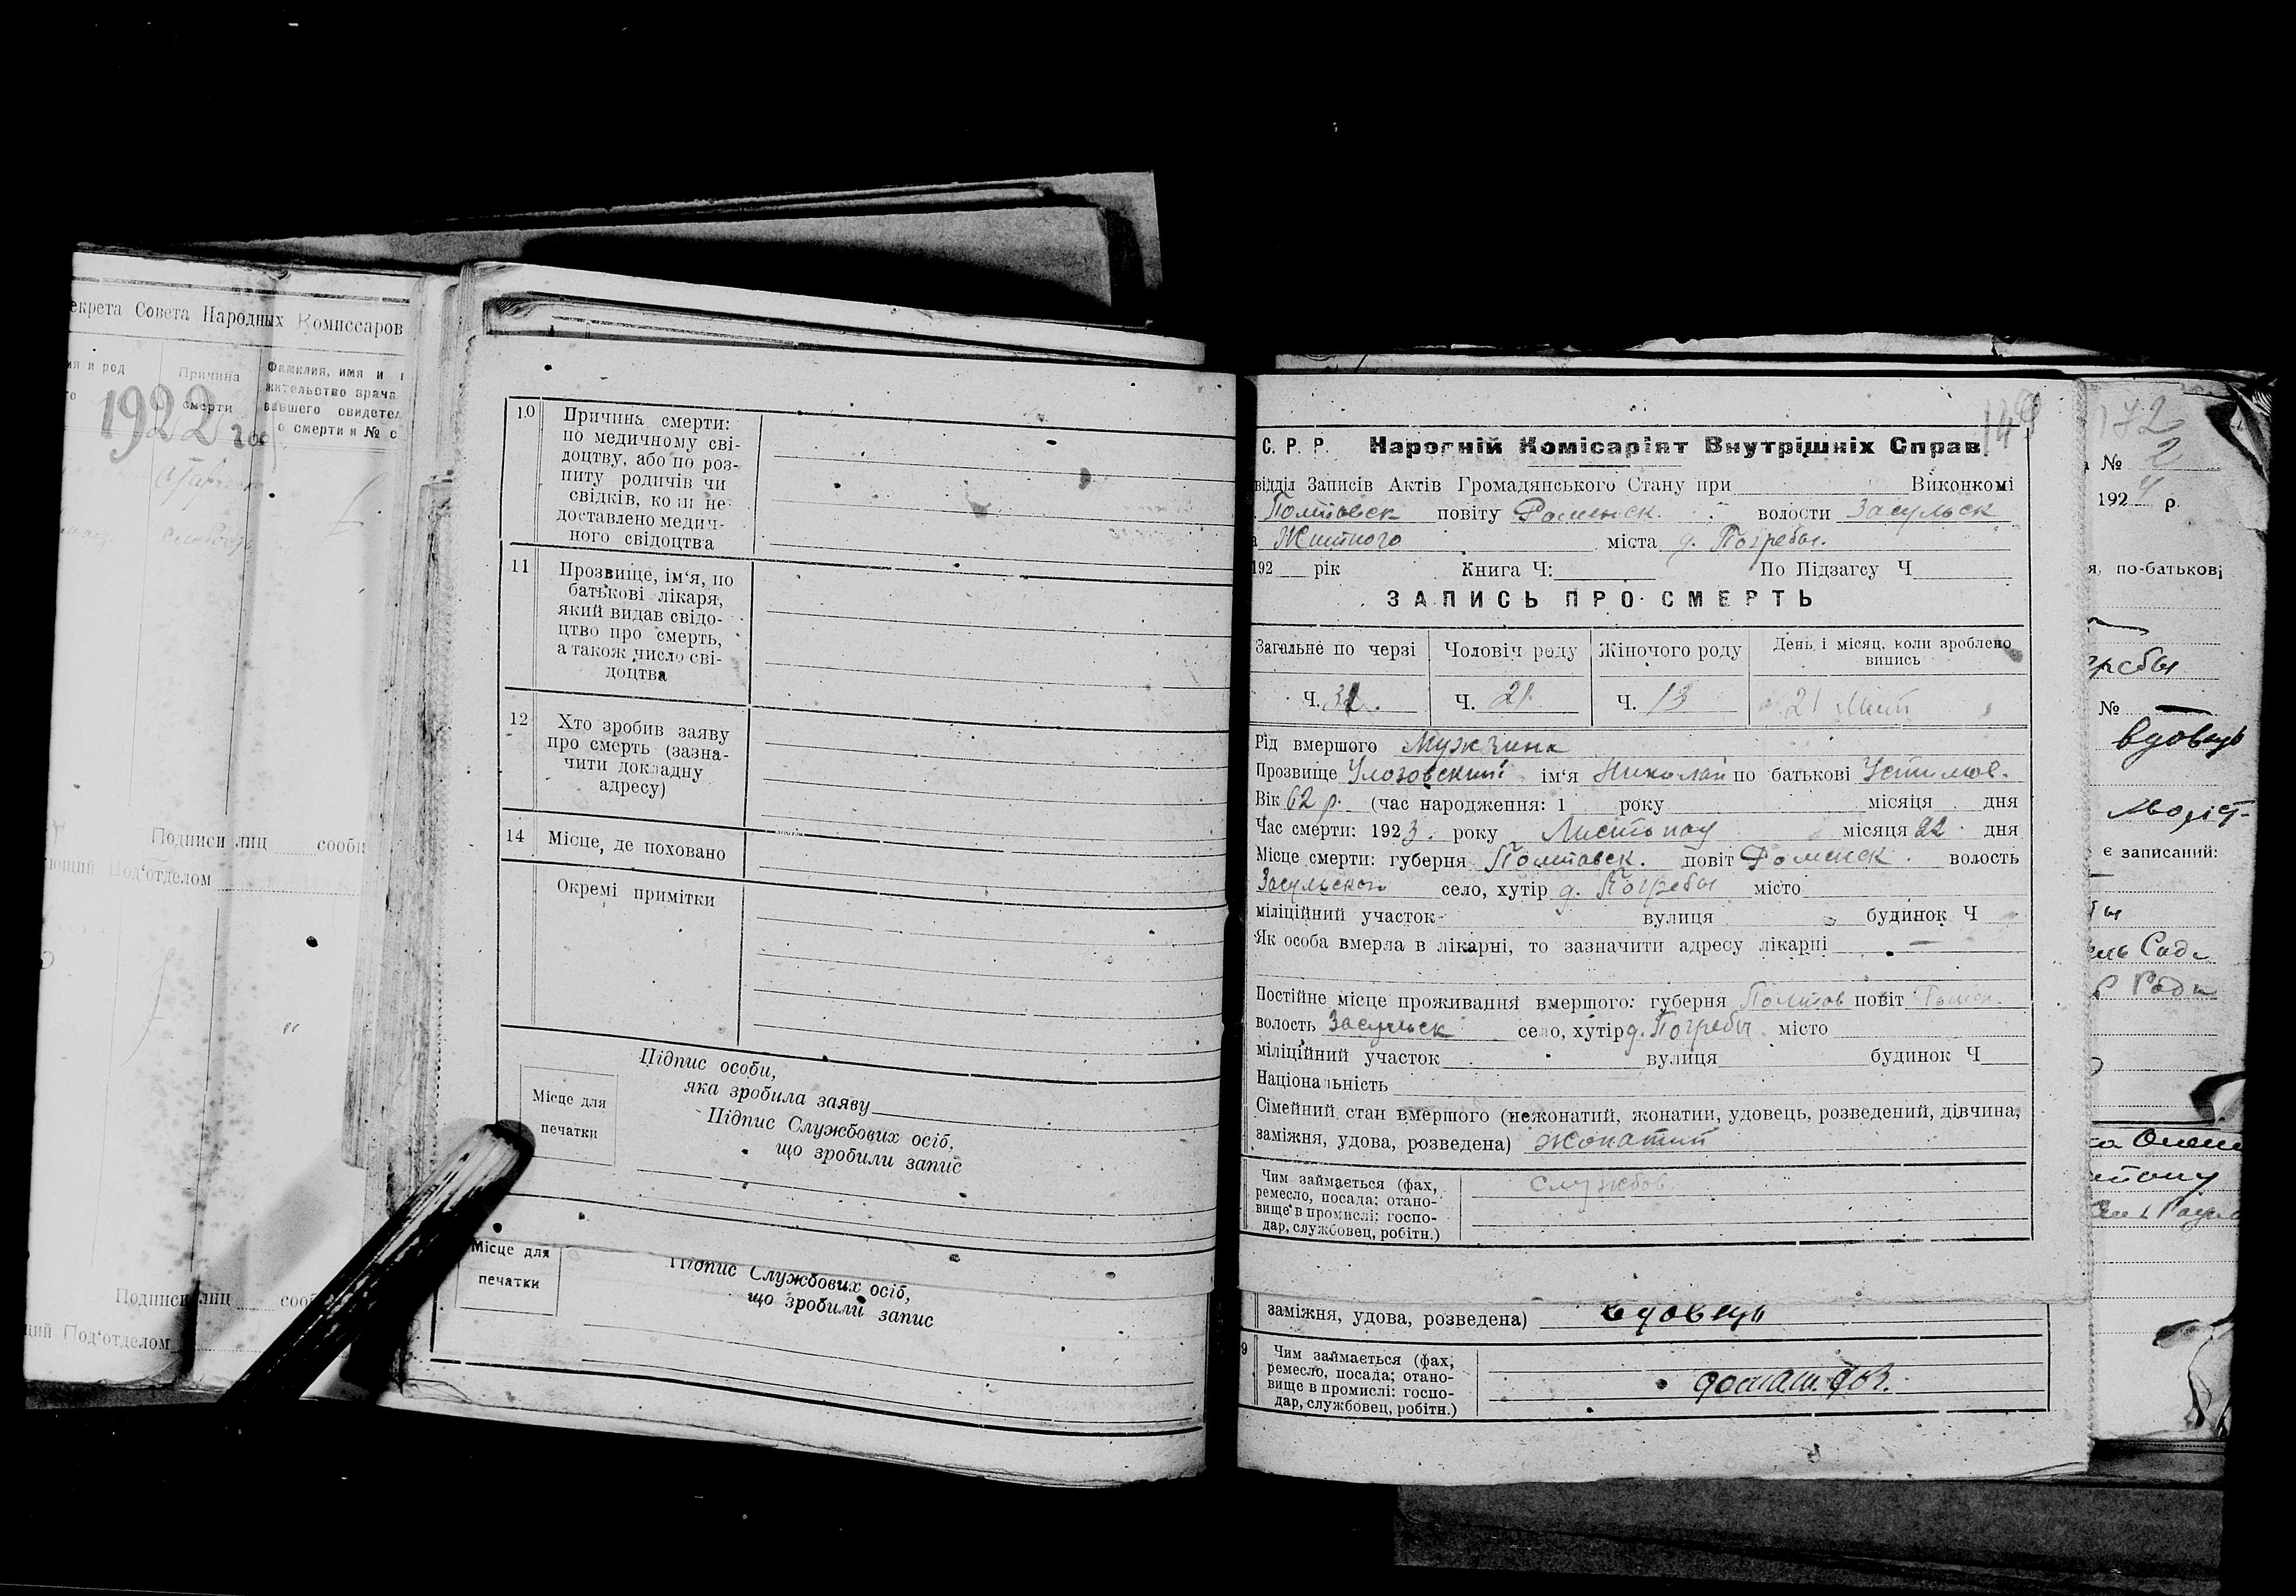 екрета Совета Народных Комиссаров
Причина
смерти
Фамилия, имя и
жительство врача
о смерти и № с
1922
Подписи лиц сооб
Под'отделом
Подписи лиц сооб
щий Под'отделом
10 Причина смерти:
по медичному сві-
доцтву, або по роз-
питу родичів чи
свідків, коли не
доставлено медич-
ного свідоцтва
11 Прозвище, ім'я, по
батькові лікаря,
який видав свідо-
цтво про смерть,
а також число сві-
доцтва
12 Хто зробив заяву
про смерть (зазна-
чити докладну
адресу)
14 Місце, де поховано
Окремі примітки
Підпис особи,
яка зробила заяву
Місце для
печатки
Підпис Службових осіб,
що зробили запис
Місце для
печатки
Підпис Службових осіб,
що зробили запис
149
С. Р. Р. Народній Комісаріят Внутрішніх Справ
відділ Записів Актів Громадянського Стану при Виконкомі
Полтавск повіту Роменск. волости Засульск
Житного міста д. Погребы.
192 рік Книга Ч: По Підзагсу Ч
ЗАПИСЬ ПРО СМЕРТЬ
Загальне по черзі Чоловіч роду Жіночого роду День і місяц, коли зроблено
випись
Ч. Ч. 21 Ч. 13 21
Рід вмершого Мужчина
Прозвище Улозовский ім'я Николай по батькові Устимов.
Вік 62 р. (час народження: 1 року місяця дня
Час смерти: 1923 року Листопад місяця 22 дня
Місце смерти: губерня Полтавск. повіт Роменск. волость
Засульскои село, хутір д. Погребы місто
міліційний участок вулиця будинок Ч
Як особа вмерла в лікарні, то зазначити адресу лікарні —
Постійне місце проживання вмершого: губерня Полтав повіт Ромен.
волость Засульск село, хутір д. Погребы місто
міліційний участок вулиця будинок Ч
Національність
Сімейний стан вмершого (нежонатий, жонатий, удовець, розведений, дівчина,
заміжня, удова, розведена) жонатий
Чим займається (фах,
ремесло, посада; стано-
вище в промислі: госпо-
дар, службовец, робітн.)
службов.
заміжня, удова, розведена) вдовець
9 Чим займається (фах,
ремесло, посада; стано-
вище в промислі: госпо-
дар, службовец, робітн.)
172
№ 2
1924 р.
я, по-батькові
№ —
вдовець
є записаний: